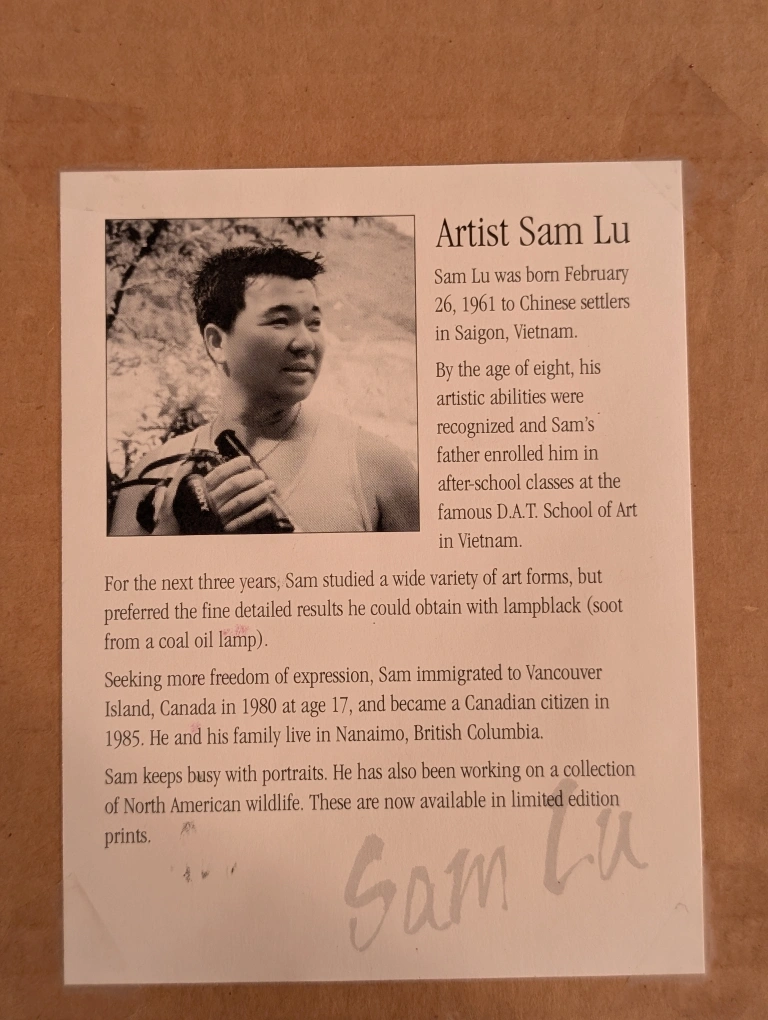 Artist Sam Lu
Sam Lu was born February
26, 1961 to Chinese settlers
in Saigon, Vietnam.
By the age of eight, his
artistic abilities were
recognized and Sam's
father enrolled him in
after-school classes at the
famous D.A.T. School of Art
in Vietnam.
SONY
For the next three years, Sam studied a wide variety of art forms, but
preferred the fine detailed results he could obtain with lampblack (soot
from a coal oil lamp).
Seeking more freedom of expression, Sam immigrated to Vancouver
Island, Canada in 1980 at age 17, and became a Canadian citizen in
1985. He and his family live in Nanaimo, British Columbia.
Sam keeps busy with portraits. He has also been working on a collection
of North American wildlife. These are now available in limited edition
prints.
Sam Lu